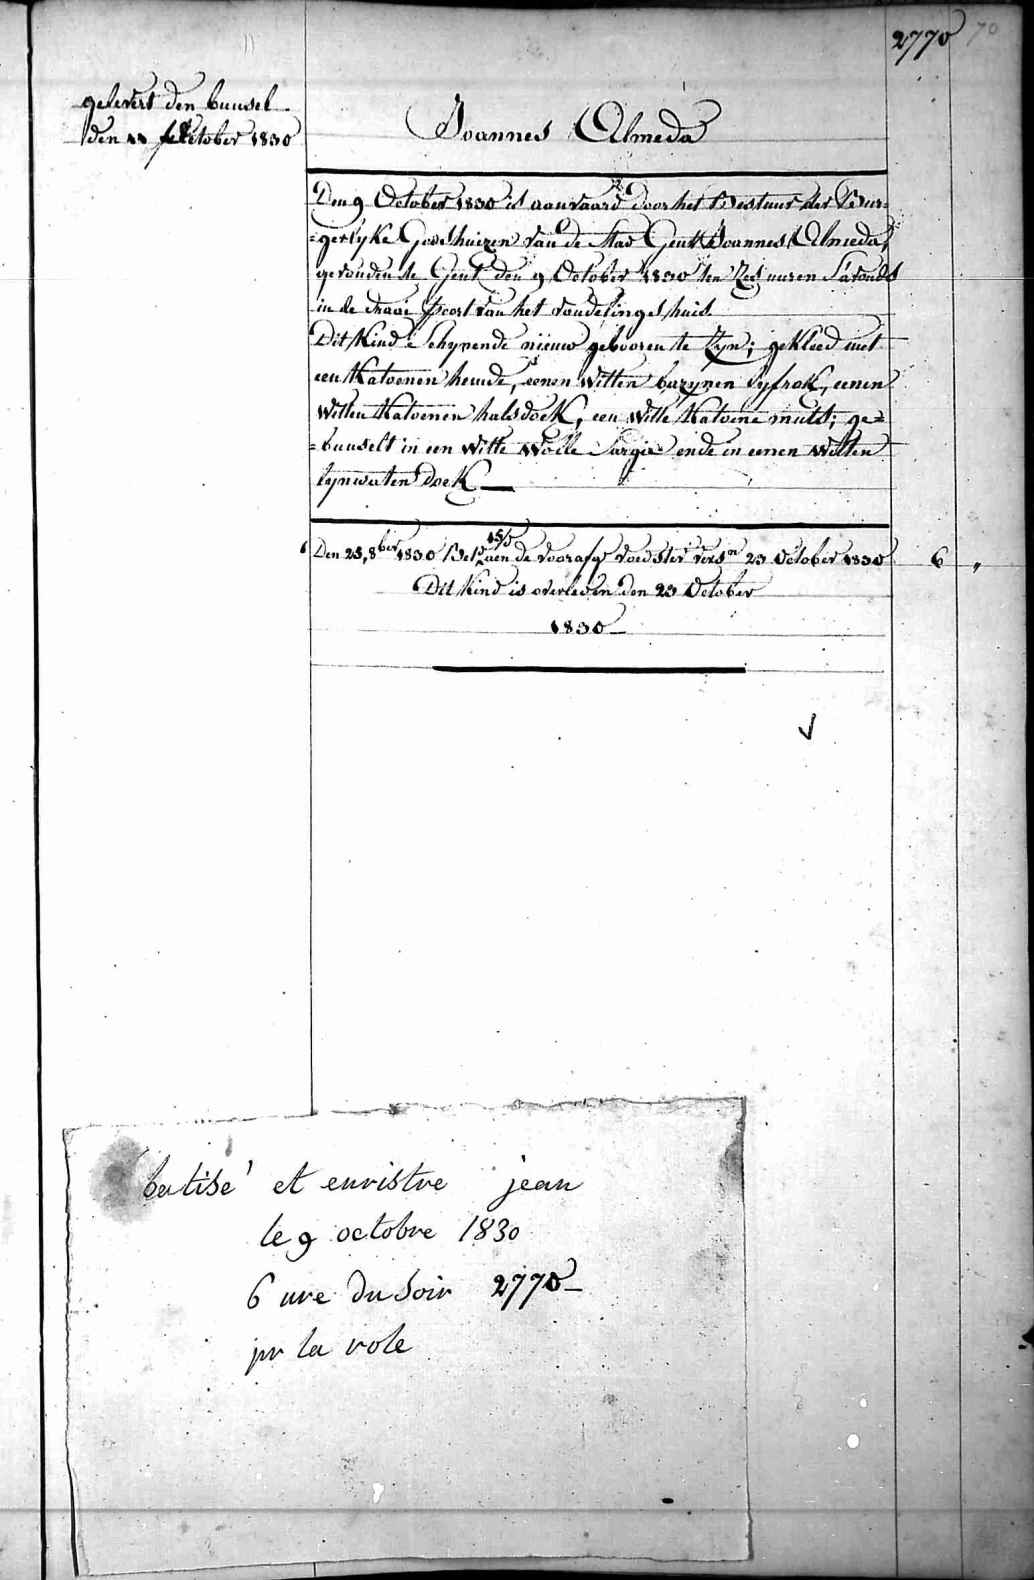 2770 70
gelevert den buusel
den 11 October 1830
Joannes Almeda
Den 9 October 1830 is aanvaard door het Bestuur der Bur=
=gerlyke Godshuizen van de Stad Gent Joannes Almeda,
gevonden te Gent den 9 October 1830 ten Zes uuren S'avonds
in de draai poort van het vondelingshuis.
Dit Kind Schynende nieuw gebooren te Zyn; gekleed met
een Katoenen hemde, eenen Witten bazynen lyfrok, eenen
Witten Katoenen halsdoek, een Witte Katoene muts; ge=
=buuselt in een Witte Wolle Sargie ende in eenen Witten
lynwaten doek
Den 25, 8ber 1830 Bet aen de voorafg voedster vers 23 October 1830 6 "
Dit Kind is overleden den 23 October
1830
batisé et enristre jean
le 9 octobre 1830
6 ure du Soir 2770
pr la role